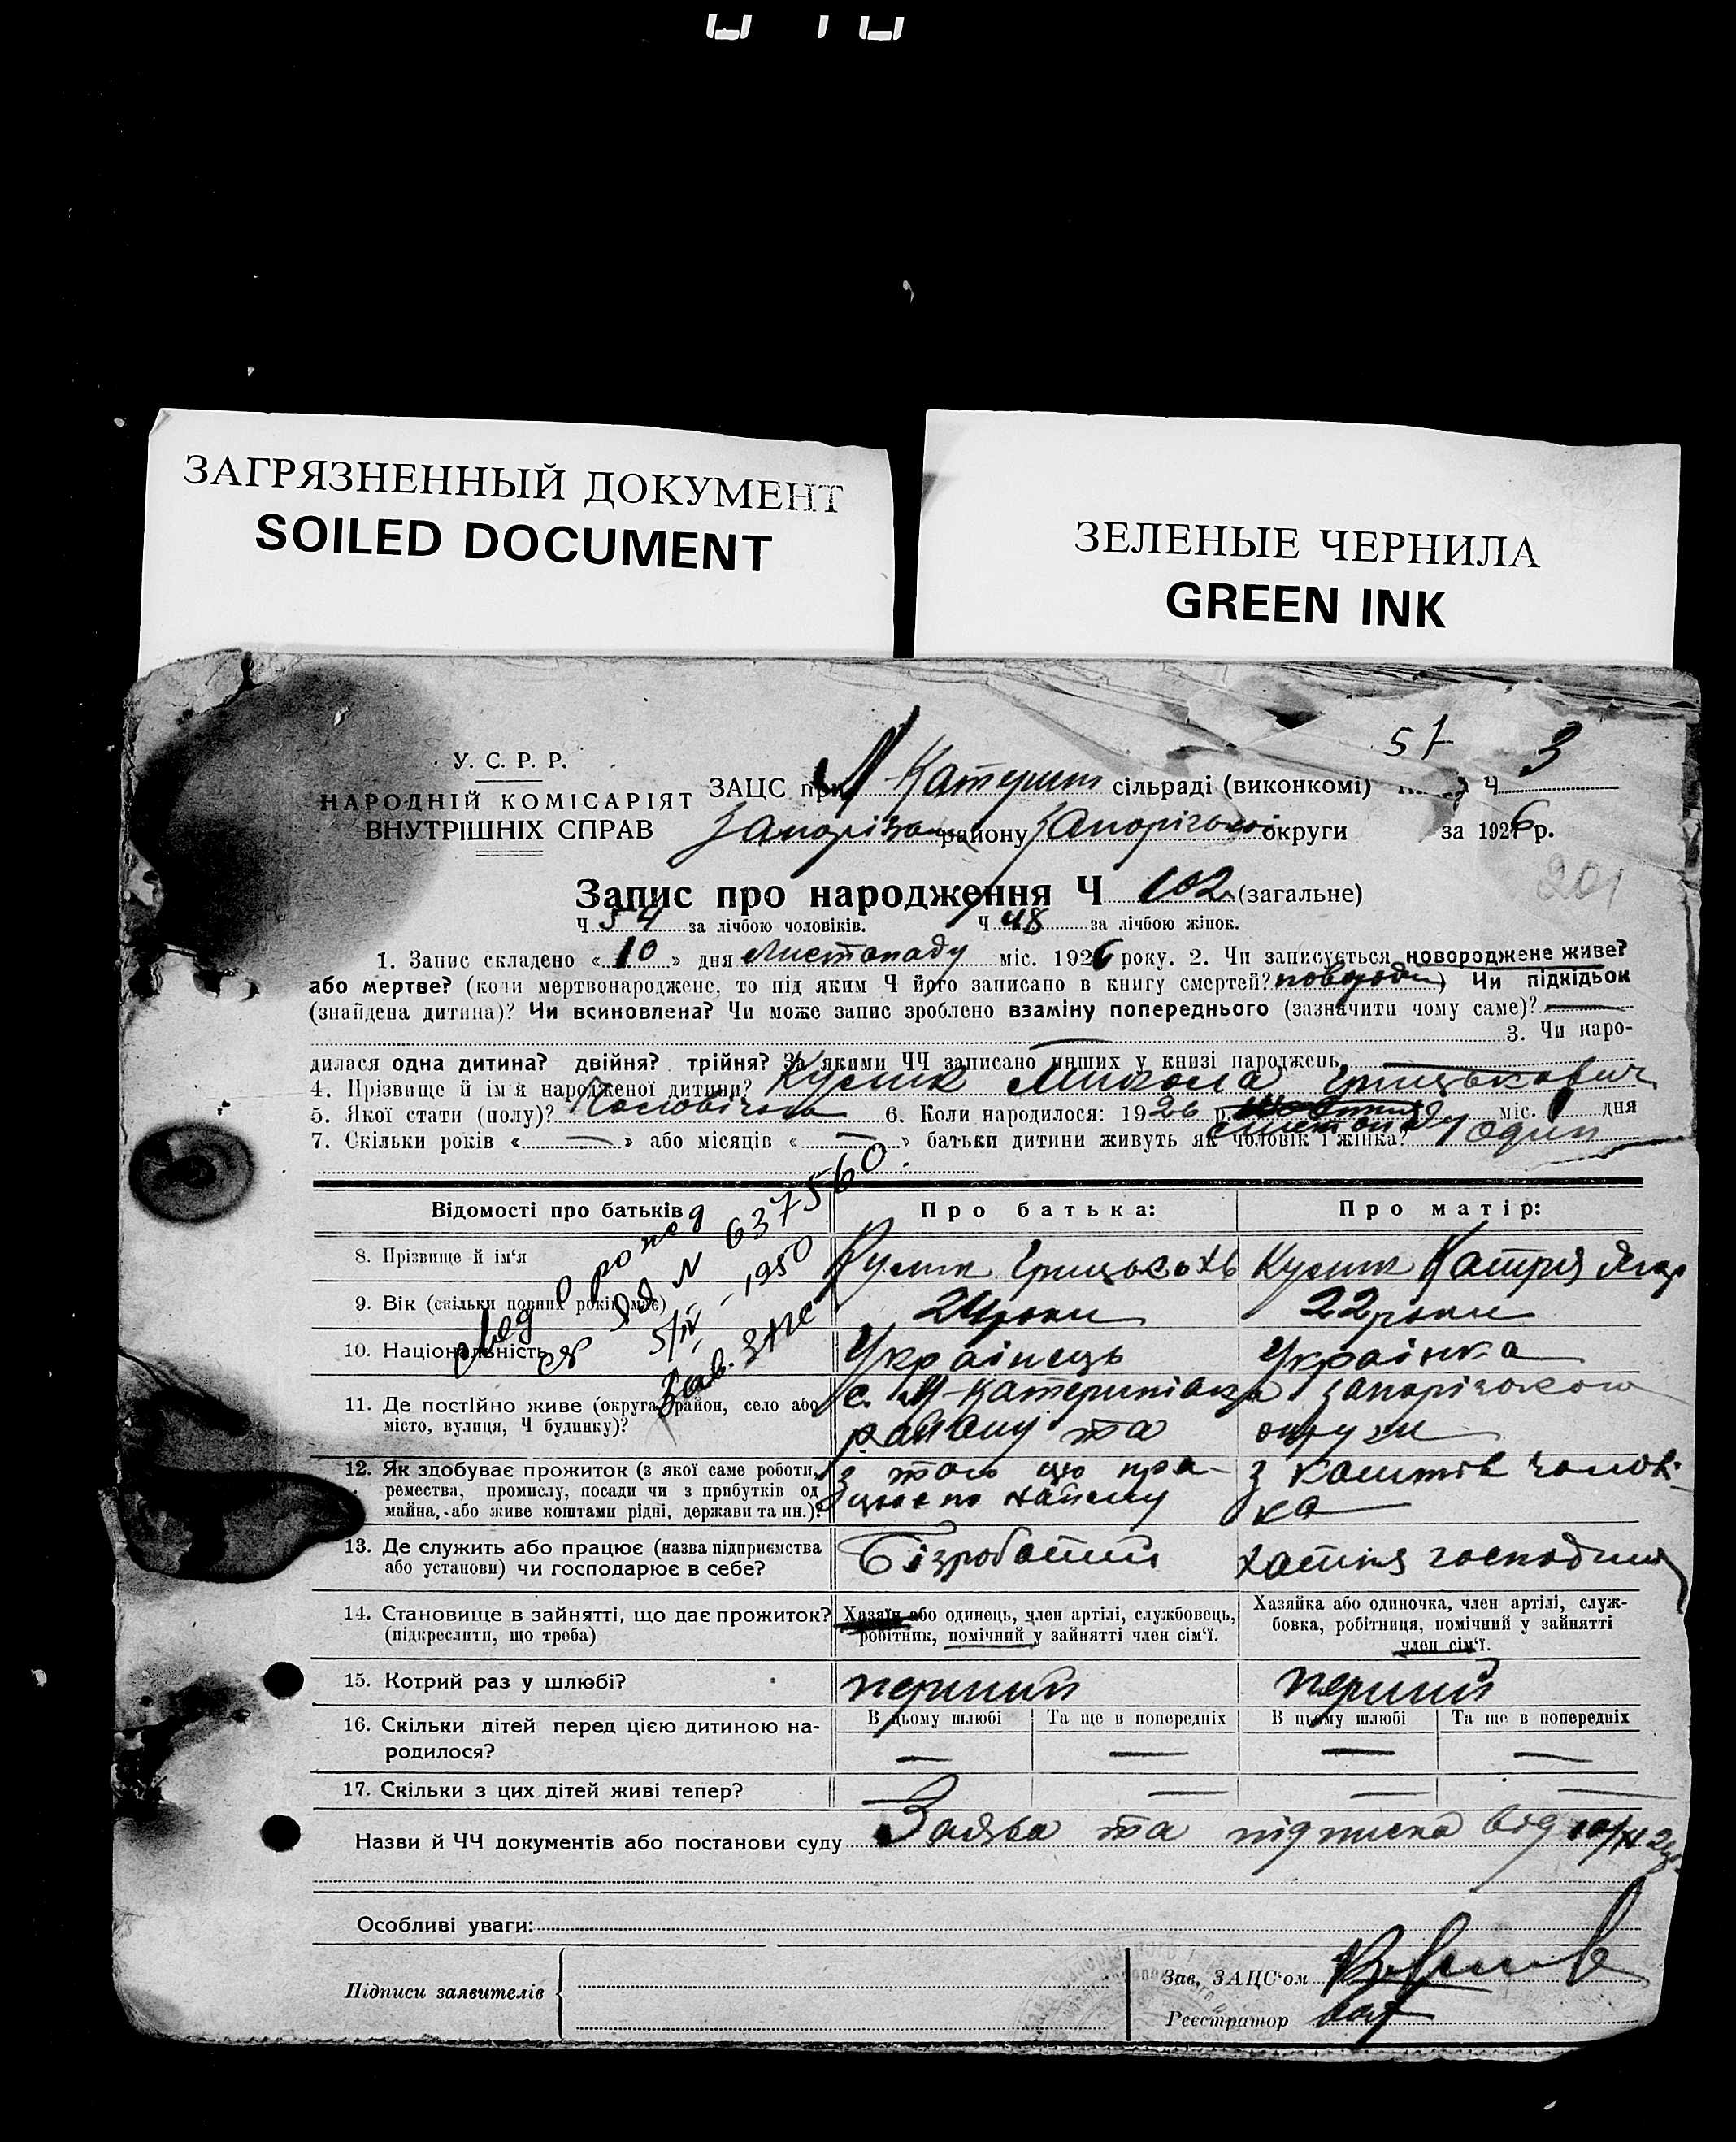 ЗАГРЯЗНЕННЫЙ ДОКУМЕНТ
SOILED DOCUMENT
ЗЕЛЕНЫЕ ЧЕРНИЛА
GREEN INK
57 3
У. С. Р. Р.
НАРОДНІЙ КОМІСАРІЯТ
ВНУТРІШНІХ СПРАВ
ЗАЦС при М-Катерин сільраді (виконкомі) Ч
району округи за 1926 р.
201
Запис про народження Ч 102 (загальне)
Ч 54 за лічбою чоловіків. Ч 48 за лічбою жінок.
1. Запис складено « 10 » дня Листопаду міс. 1926 року. 2. Чи записується новороджене живе?
або мертве? (коли мертвонароджене, то під яким Ч його записано в книгу смертей? ) Чи підкідьок
(знайдена дитина)? Чи всиновлена? Чи може запис зроблено взаміну попереднього (зазначити чому саме)?
3. Чи наро-
дилася одна дитина? двійня? трійня? За якими ЧЧ записано инших у книзі народжень
4. Прізвище й ім'я народженої дитини? Кулик Микола Грицькович
5. Якої стати (полу)? Чоловічого 6. Коли народилося: 1926 р. листопаду міс. 1 дня
7. Скільки років « — » або місяців « — » батьки дитини живуть як чоловік і жінка? один
Відомості про батьків Про батька: Про матір:
свед о рожд
ЯД N 637560.
5/IV - 1950
Зав. Загс
8. Прізвище й ім'я Кулик Грицько Кулик Катря
9. Вік (скільки повних років має) 24 роки 22 роки
10. Національність Українець Українка
11. Де постійно живе (округа, район, село або с. М-Катеринівка Запорізького
місто, вулиця, Ч будинку)? району та округи
12. Як здобуває прожиток (з якої саме роботи, з того що пра- з коштів чолові-
ремества, промислу, посади чи з прибутків од цює по найму ка
майна, або живе коштами рідні, держави та ин.)?
13. Де служить або працює (назва підприємства Бізробітний хатня господиня
або установи) чи господарює в себе?
14. Становище в зайнятті, що дає прожиток? Хазяїн або одинець, член артілі, службовець, Хазяйка або одиночка, член артілі, служ-
(підкреслити, що треба) робітник, помічний у зайнятті член сім'ї. бовка, робітниця, помічний у зайнятті
член сім'ї.
15. Котрий раз у шлюбі? перший перший
16. Скільки дітей перед цією дитиною на- В цьому шлюбі Та ще в попередніх В цьому шлюбі Та ще в попередніх
родилося? — — — —
17. Скільки з цих дітей живі тепер? — — — —
Назви й ЧЧ документів або постанови суду Заява та підписка від 10/XI
Особливі уваги:
Підписи заявителів
Зав. ЗАЦС'ом
Реєстратор